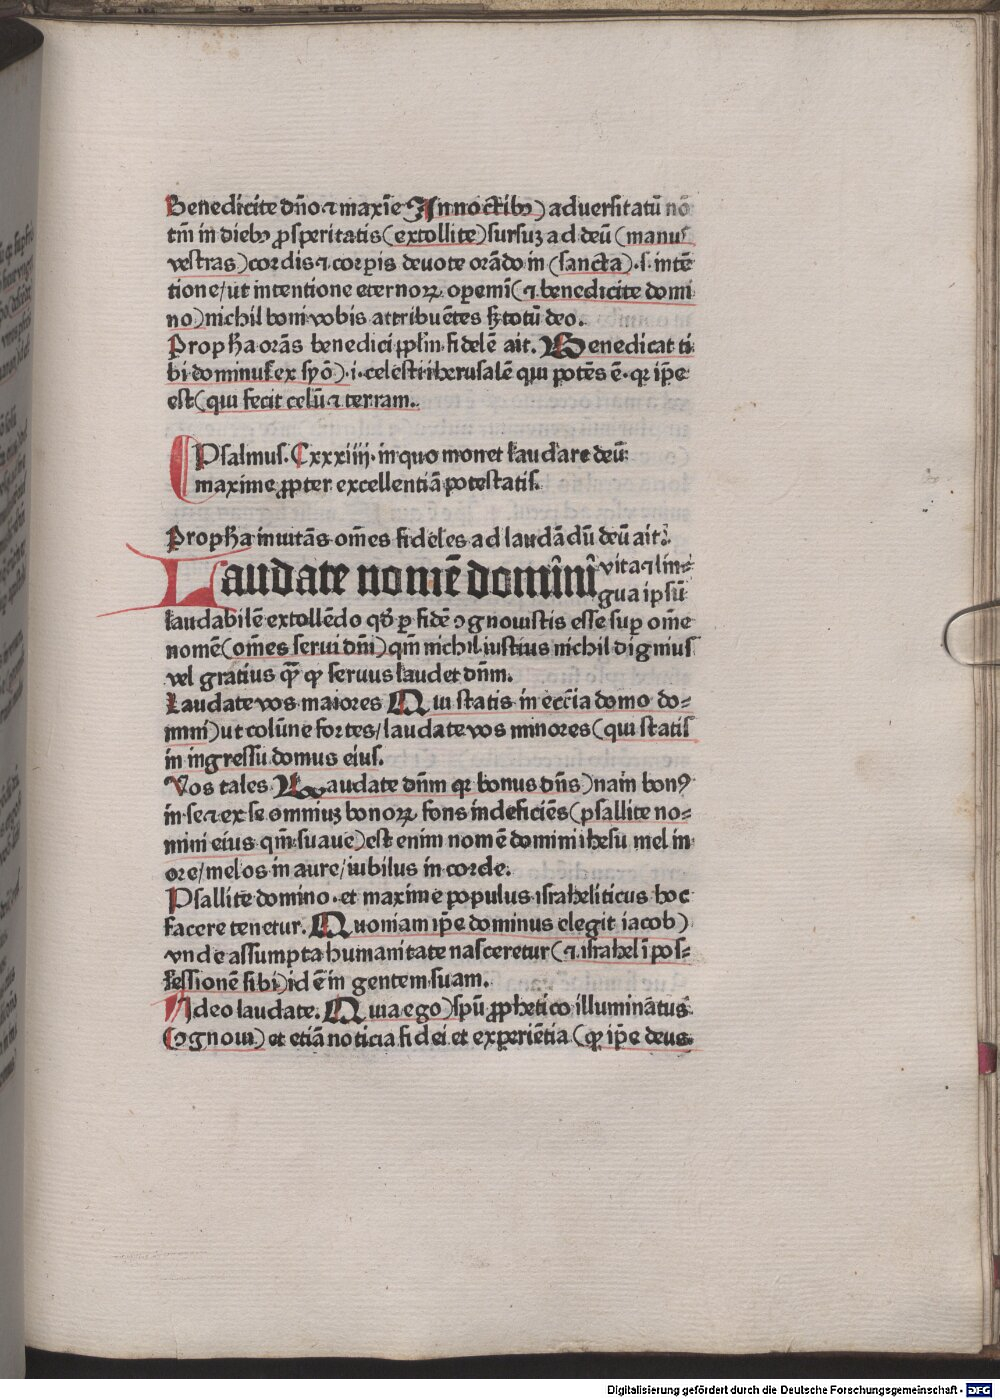 Benedicite dño ⁊ maxīe Jn noctibꝯ) aduersitatū nō
tm̄ in diebꝯ ꝓsperitatis (extollite) sursuꝫ ad deū (manus
vestras) cordis ⁊ corꝑis deuote orādo in (sancta) .s. intē
tione/ut intentione eternoꝝ oꝑemī (⁊ benedicite domi
no) nichil boni vobis attribuētes sꝫ totū deo.
Propħa orās benedici pp̄lm̄ fidelē ait. Benedicat ti
bi dominus ex syō) .i. celesti iherusalē qui potēs ē. qꝛ ip̄e
est (qui fecit celū ⁊ terram..
Psalmus. Cxxxiiii. in quo monet laudare deū
maxime ꝓpter excellentiā potestatis.
Propħa inuitās om̄es fideles ad laudādū deū ait.
Laudate nomē domini vita ⁊ lin-
gua ipsū
laudabilē extollēdo qđ ꝑ fidē ꝯgnouistis esse suꝑ om̄e
nomē (om̄es serui dn̄i) qm̄ nichil iustius nichil dignius
vel gratius qȝ̄ ꝙ seruus laudet dn̄m.
Laudate vos maiores Qui statis in ecc̄ia domo do-
mini) ut colūne fortes/laudate vos minores (qui statis
in ingressu domus eius.
Vos tales Laudate dn̄m qꝛ bonus dn̄s) nam bonꝰ
in se ⁊ ex se omniuꝫ bonoꝝ fons indeficiēs (psallite no-
mini eius qm̄ suaue) est enim nomē domini ihesu mel in
ore/melos in aure/iubilus in corde.
Psallite domino. et maxime populus israheliticus hoc
facere tenetur. Quoniam ip̄e dominus elegit iacob)
vnde assumpta humanitate nasceretur (⁊ israhel ī pos-
sessionē sibi) id ē in gentem suam.
Adeo laudate. Quia ego) spū ꝓphetico illuminātus
(ꝯgnoui) et etiā noticia fidei et experiētia (ꝙ ip̄e deus
Digitalisierung gefördert durch die Deutsche Forschungsgemeinschaft - DFG